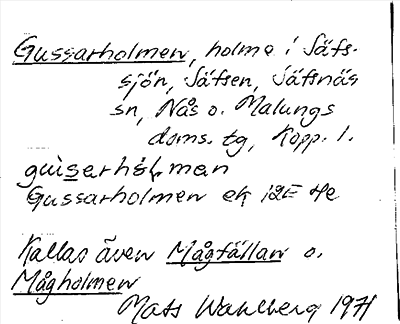 Gussarholmen, holme i Säfs-
sjön, Säfsen, Säfsnäs
sn, Nås o. Malungs
doms. tg, Kopp. l.
guserhólman
Gussarholmen ek 12E 4e
Kallas även Mågfällan o.
Mågholmen
Mats Wahlberg 1971